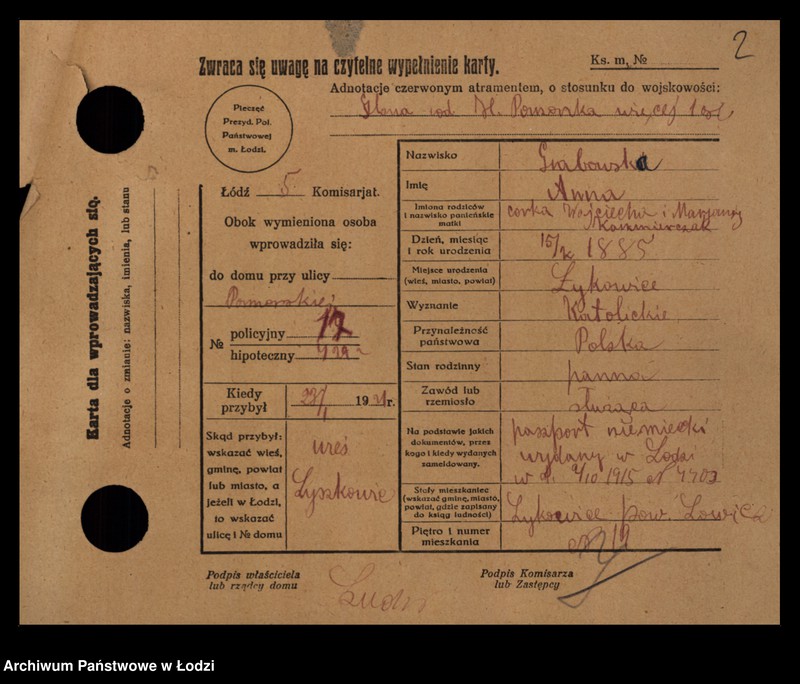 2
Zwraca się uwagę na czytelne wypełnienie karty.
Ks. m. №
Adnotacje czerwonym atramentem, o stosunku do wojskowości:
Pieczęć
Prezyd. Pol.
Państwowej
m. Łodzi.
Karta dla wprowadzających się.
Adnotacje o zmianie: nazwiska, imienia, lub stanu
Łódź 5. Komisarjat.
Obok wymieniona osoba
wprowadziła się:
do domu przy ulicy
Pomorskiej
№ policyjny 17
hipoteczny
Kiedy przybył 1921 r.
Skąd przybył:
wskazać wieś,
gminę, powiat
lub miasto, a
jeżeli w Łodzi,
to wskazać
ulicę i № domu
wieś
Łyszkowice
Nazwisko Grabowska
Imię Anna
Imiona rodziców i nazwisko panieńskie matki córka Wojciecha i Marjanny
Kaźmierczak
Dzień, miesiąc i rok urodzenia 1885
Miejsce urodzenia (wieś, miasto, powiat) Łykowice
Wyznanie Katolickie
Przynależność państwowa Polska
Stan rodzinny panna
Zawód lub rzemiosło służąca
Na podstawie jakich dokumentów, przez kogo i kiedy wydanych zameldowany.
paszport niemiecki
wydany w Łodzi
w d. 4/10 1915
Stały mieszkaniec (wskazać gminę, miasto, powiat, gdzie zapisany do ksiąg ludności) Łykowice pow. Łowicz
Piętro i numer mieszkania 19
Podpis właściciela
lub rządcy domu
Podpis Komisarza
lub Zastępcy
Archiwum Państwowe w Łodzi